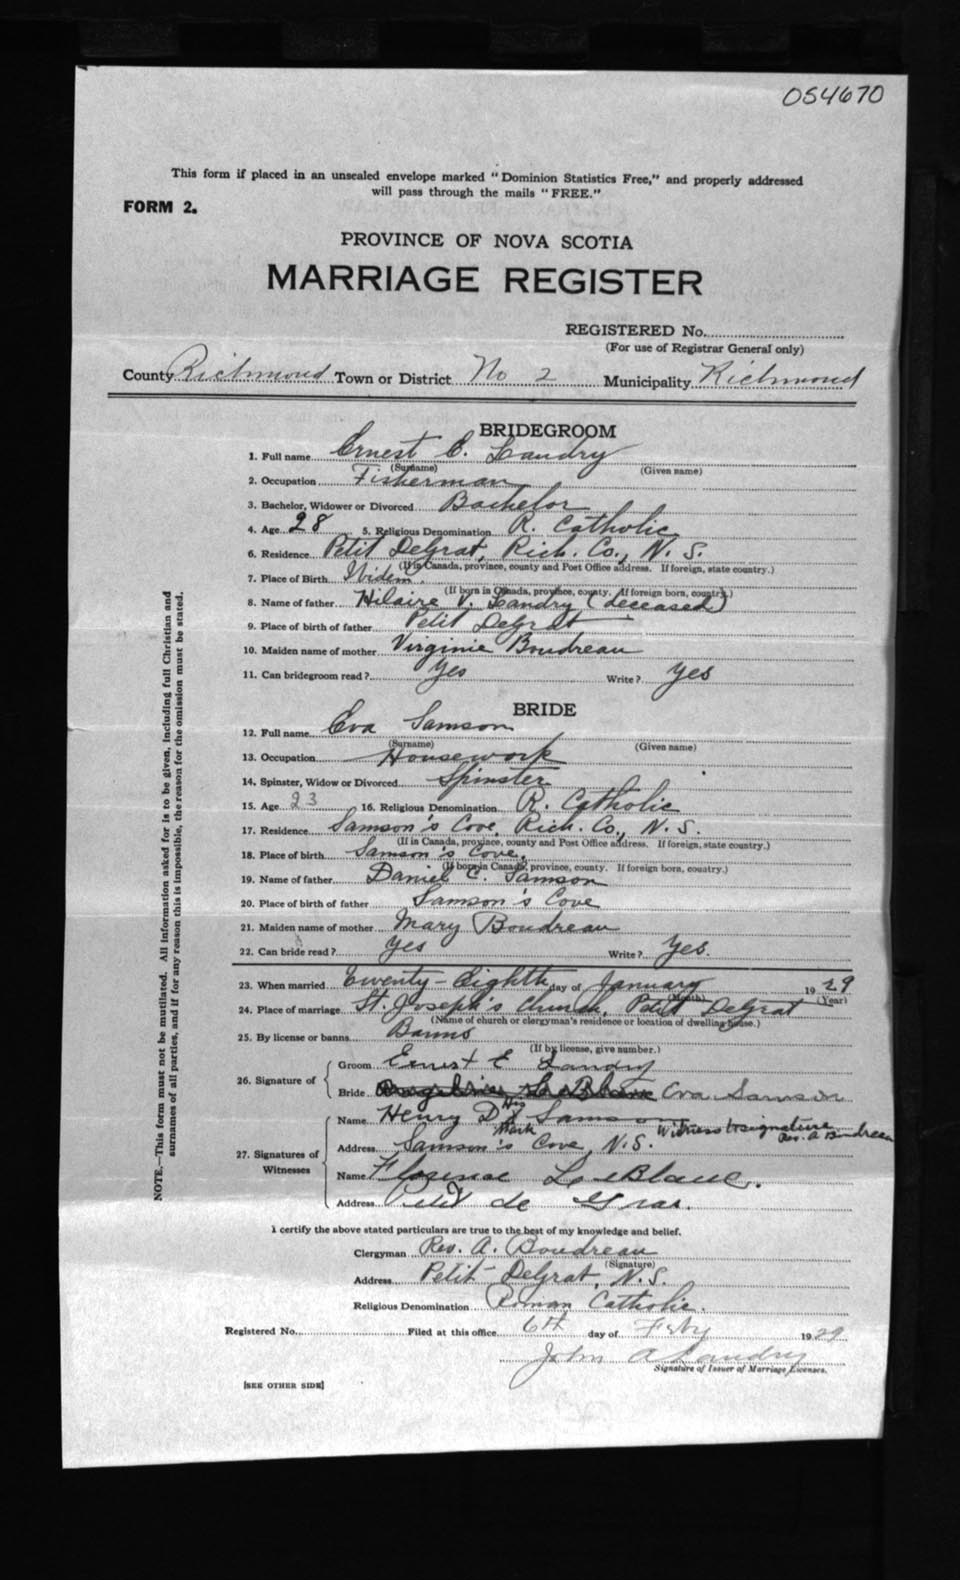 054670
This form if placed in an unsealed envelope marked "Dominion Statistics Free," and properly addressed
will pass through the mails "FREE."
FORM 2.
PROVINCE OF NOVA SCOTIA
MARRIAGE REGISTER
REGISTERED No.
(For use of Registrar General only)
County Richmond Town or District No 2 Municipality Richmond
BRIDEGROOM
1. Full name Ernest E. Landry
(Surname) (Given name)
2. Occupation Fisherman
3. Bachelor, Widower or Divorced Bachelor
4. Age 28 5. Religious Denomination R. Catholic
6. Residence Petit DeGrat, Rich. Co., N. S.
(If in Canada, province, county and Post Office address. If foreign, state country.)
7. Place of Birth Ibidem.
(If born in Canada, province, county. If foreign born, country.)
8. Name of father Hilaire V. Landry (deceased)
9. Place of birth of father Petit DeGrat
10. Maiden name of mother Virginie Boudreau
11. Can bridegroom read? Yes Write? Yes
BRIDE
12. Full name Eva Samson
(Surname) (Given name)
13. Occupation Housework
14. Spinster, Widow or Divorced Spinster
15. Age 23 16. Religious Denomination R. Catholic
17. Residence Samson's Cove, Rich. Co., N. S.
(If in Canada, province, county and Post Office address. If foreign, state country.)
18. Place of birth Samson's Cove,
(If born in Canada, province, county. If foreign born, country.)
19. Name of father Daniel C. Samson
20. Place of birth of father Samson's Cove
21. Maiden name of mother Mary Boudreau
22. Can bride read? Yes Write? Yes.
23. When married Twenty-Eighth day of January 1929
(Month) (Year)
24. Place of marriage St. Joseph's Church, Petit DeGrat
(Name of church or clergyman's residence or location of dwelling house.)
25. By license or banns Banns
(If by license, give number.)
26. Signature of Groom Ernest E Landry
Bride Eva Samson
27. Signatures of Witnesses
Name Henry D His X Mark Samson Witness to signature Rev. A Boudreau
Address Samson's Cove, N.S.
Name Florence LeBlanc.
Address Petit de Gras.
I certify the above stated particulars are true to the best of my knowledge and belief.
Clergyman Rev. A. Boudreau
(Signature)
Address Petit DeGrat, N.S.
Religious Denomination Roman Catholic.
Registered No. Filed at this office 6th day of Feby 1929
John A Landry
Signature of Issuer of Marriage Licenses.
[SEE OTHER SIDE]
NOTE.—This form must not be mutilated. All information asked for is to be given, including full Christian and
surnames of all parties, and if for any reason this is impossible, the reason for the omission must be stated.